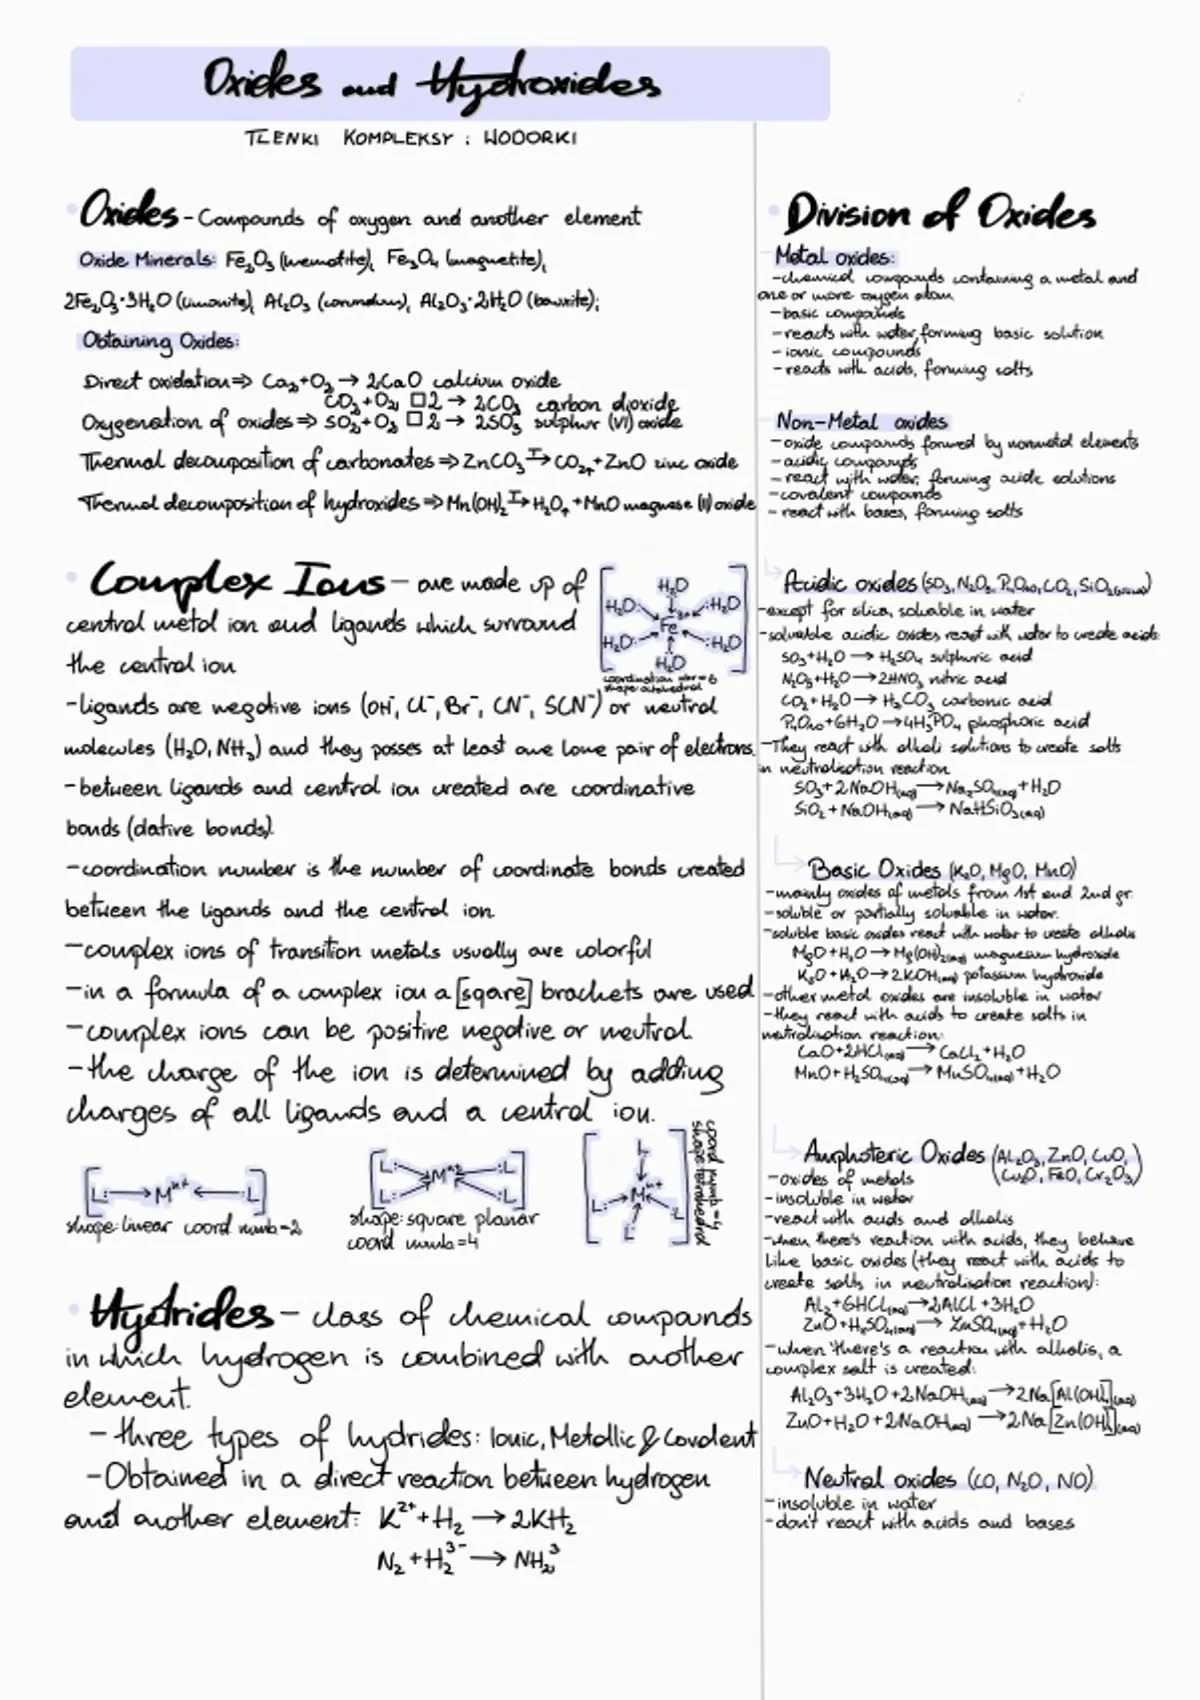 Oxides and Hydroxides
TLENKI KOMPLEKSY i WODORKI
Oxides - Compounds of oxygen and another element
Oxide Minerals: Fe₂O₃ (hematite), Fe₃O₄ (magnetite),
2Fe₂O₃·3H₂O (limonite), Al₂O₃ (corundum), Al₂O₃·2H₂O (bauxite);
Obtaining Oxides:
Direct oxidation ⇒ Ca₂+O₂ → 2CaO calcium oxide
CO₂+O₂ □2 → 2CO₃ carbon dioxide
Oxygenation of oxides ⇒ SO₂+O₂ □2 → 2SO₃ sulphur (VI) oxide
Thermal decomposition of carbonates ⇒ ZnCO₃ →T CO₂↑+ZnO zinc oxide
Thermal decomposition of hydroxides ⇒ Mn(OH)₂ →T H₂O↑+MnO (II) oxide
Complex Ions - are made up of
central metal ion and ligands which surround
the central ion
-ligands are negative ions (OH⁻, Cl⁻, Br⁻, CN⁻, SCN⁻) or neutral
molecules (H₂O, NH₃) and they posses at least one lone pair of electrons.
-between ligands and central ion created are coordinative
bonds (dative bonds).
-coordination number is the number of coordinate bonds created
between the ligands and the central ion
-complex ions of transition metals usually are colorful
-in a formula of a complex ion a [sqare] brackets are used
-complex ions can be positive negative or neutral.
-the charge of the ion is determined by adding
charges of all ligands and a central ion.
H₂O
H₂O: :H₂O
Fe
H₂O: :H₂O
H₂O
coordination nbr=6
shape: octahedral
[L:→Mⁿ⁺←:L]
shape: linear coord numb=2
L: :L
Mⁿ⁺
L: :L
shape: square planar
coord numb=4
L
Mⁿ⁺
L L
L
coord numb=4
shape: tetrahedral
Hydrides - class of chemical compounds
in which hydrogen is combined with another
element.
- three types of hydrides: Ionic, Metallic & Covalent
-Obtained in a direct reaction between hydrogen
and another element: K²⁺+H₂ → 2KH₂
N₂+H₂³⁻ → NH₂³
Division of Oxides
Metal oxides:
-chemical compounds containing a metal and
one or more oxygen atom
-basic compounds
-reacts with water, forming basic solution
-ionic compounds
-reacts with acids, forming salts
Non-Metal oxides
-oxide compounds formed by nonmetal elements
-acidic compounds
-react with water, forming acidic solutions
-covalent compounds
-react with bases, forming salts
Acidic oxides (SO₃, N₂O₅, P₄O₁₀, CO₂, SiO₂
-except for silica, soluable in water
-soluable acidic oxides react with water to create acids:
SO₃+H₂O → H₂SO₄ sulphuric acid
N₂O₅+H₂O → 2HNO₃ nitric acid
CO₂+H₂O → H₂CO₃ carbonic acid
P₄O₁₀+6H₂O → 4H₃PO₄ phosphoric acid
-They react with alkali solutions to create salts
in neutralisation reaction
SO₃+2NaOH(aq) → Na₂SO₄(aq)+H₂O
SiO₂+NaOH(aq) → NaHSiO₃(aq)
Basic Oxides (K₂O, MgO, MnO)
-mainly oxides of metals from 1st and 2nd gr.
-soluble or partially soluable in water.
-soluble basic oxides react with water to create alkalis
MgO+H₂O → Mg(OH)₂(aq) magnesium hydroxide
K₂O+H₂O → 2KOH(aq) potassium hydroxide
-other metal oxides are insoluble in water
-they react with acids to create salts in
neutralisation reaction:
CaO+2HCl(aq) → CaCl₂+H₂O
MnO+H₂SO₄(aq) → MnSO₄(aq)+H₂O
Amphoteric Oxides (Al₂O₃, ZnO, CuO,
Cu₂O, FeO, Cr₂O₃)
-oxides of metals
-insoluble in water
-react with acids and alkalis
-when there's reaction with acids, they behave
like basic oxides (they react with acids to
create salts in neutralisation reaction):
Al₂+6HCl(aq) → 2AlCl+3H₂O
ZnO+H₂SO₄(aq) → ZnSO₄(aq)+H₂O
-when there's a reaction with alkalis, a
complex salt is created:
Al₂O₃+3H₂O+2NaOH(aq) → 2Na[Al(OH)₄](aq)
ZnO+H₂O+2NaOH(aq) → 2Na[Zn(OH)₄](aq)
Neutral oxides (CO, N₂O, NO)
-insoluble in water
-don't react with acids and bases